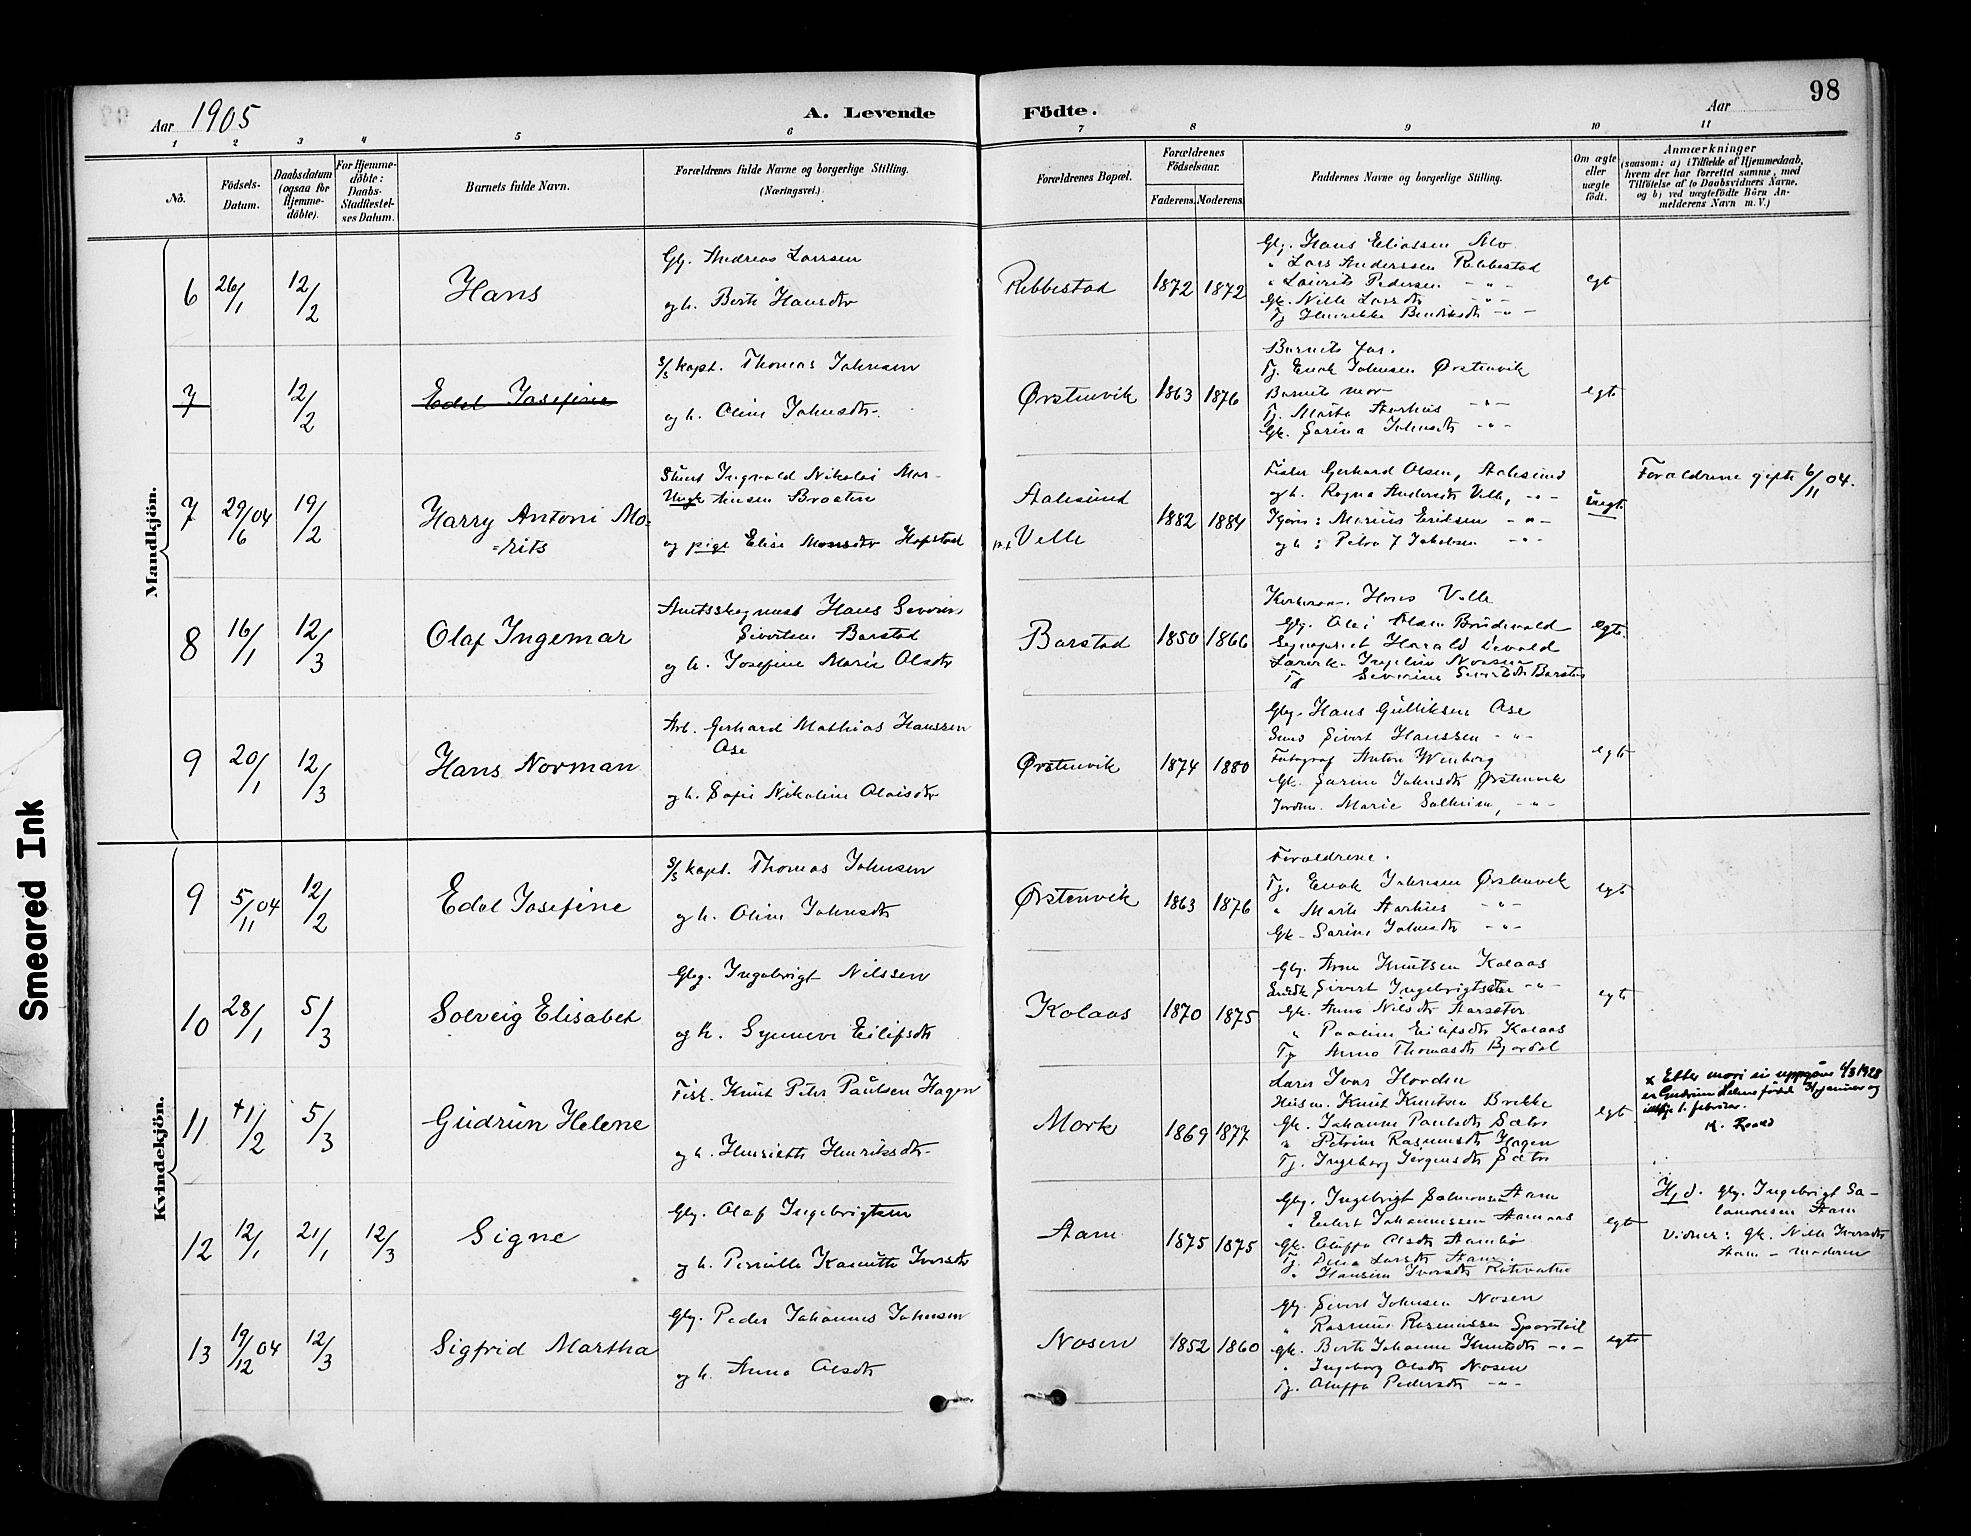 98
Aar 1905
A. Levende
Födte.
Aar
1 2 3 4 5 6 7 8 9 10 11
No.
Födsels-Datum.
Daabsdatum (ogsaa for Hjemme-döbte).
For Hjemme-döbte: Daabs-Stadfæstel-ses Datum.
Barnets fulde Navn.
Forældrenes fulde Navne og borgerlige Stilling. (Næringsvei.)
Forældrenes Bopæl.
Forældrenes Födselsaar.
Faderens. Moderens.
Faddernes Navne og borgerlige Stilling.
Om ægte eller uægte födt.
Anmærkninger
(saasom: a) i Tilfælde af Hjemmedaab, hvem der har forrettet samme, med Tilföielse af to Daabsvidners Navne, og b) ved uægtefödte Börn An-melderens Navn m. V.)
Mandkjön.
6 26/1 12/2 Hans
Gbr. Andreas Larssen
og h. Berte Hansdtr
Rebbestad 1872 1872
Gbr. Hans Eliassen Mo
" Lars Anderssen Rebbestad
" Laurits Pedersen - " -
Gk. Nille Larsdtr - " -
Tj Henrikke Bendiksdtr - " -
egt
7 12/2 Edel Josefine
S/S kapt. Thomas Johnsen
og h. Oline Johnsdtr.
Ørstenvik 1863 1876
Barnets far.
Tj. Enok Johnsen Ørstenvik
Barnets mor
Tj. Marta Aarhus - " -
Gk. Sarina Johnsdtr - " -
egt
7 29/6 04 19/2 Harry Antoni Mo-
=rits
Ingvald Nikolai Mar-
Ungk. tinsen Braaten
og pige Elise Monsdtr Hopstad
Aalesund
p.t. Velle
1882 1884
Fisker Gerhard Olsen, Aalesund
og h. Ragna Andersdtr Velle, - " -
Marius Eriksen - " -
og h: Petra J Jakobsen - " -
uegt.
Forældrene gifte 6/11 04.
8 16/1 12/3 Olaf Ingemar
Hans Severin
Sivertsen Barstad
og h. Josefine Marie Olsdtr
Barstad 1850 1866
Hans Velle
Gbr. Olai Olsen Brudevold
Harald Devold
Severine Sivertsdtr Barstad
egte.
9 20/1 12/3 Hans Norman
Arb. Gerhard Mathias Hanssen
Ose
og h. Sofie Nikoline Olaisdtr
Ørstenvik 1874 1880
Gbr. Hans Gulliksen Ose
Sivert Hanssen - " -
Fotograf Anton Wenberg
Gk. Sarine Johnsdtr Ørstenvik
Jordm. Marie Solheim, - " -
egte
Kvindekjön.
9 5/11 04 12/2 Edel Josefine
S/S kapt. Thomas Johnsen
og h. Oline Johnsdtr
Ørstenvik 1863 1876
Forældrene.
Tj. Enok Johnsen Ørstenvik
" Marte Aarhus - " -
Gk - Sarine Johnsdtr - " -
egte
10 28/1 5/3 Solveig Elisabet
Gbr. Ingebrigt Nilssen
og h. Synneve Eilifsdtr
Kolaas 1870 1875
Gbr. Arne Knutsen Kolaas
Sivert Ingebrigtsen - " -
Gk. Anna Nilsdtr Aarsæter
" Pauline Eilifsdtr Kolaas
Tj Anna Thomasdtr Bjørdal
egte
11 +1/2 5/3 Gudrun Helene
Fisk. Knut Peter Paulsen Hagen
og h. Henriette Henriksdtr
Mork 1869 1877
Lærer Ivar Hovden
Husm. Knut Knutsen Brekke
Gk. Johanne Paulsdtr Sætre
" Petrine Rasmusdtr Hagen
Tj. Ingeborg Jørgensdtr Sætre
egte
x Etter mori si uppgåve 4/3 1928
er Gudrun Helene fødd januar og
ikkje 1. februar.
12 12/1 21/1 12/3 Signe
Gbr. Olaf Ingebrigtsen
og h. Pernille Kanutte Iversdtr
Aam 1875 1875
Gbr. Ingebrigt Salmonsen Aam
" Johannessen Aamaas
Gk. Oluffa Olsdtr Aambø
Tj. Lina Larsdtr Aam
" Hansine Iversdtr Rotevatne
egte
Hj d. Gbr. Ingebrigt Sa-
lamonsen Aam
Vidner: Gk. Nille Iversdtr
Aam - moderen
13 19/12 04 12/3 Sigfrid Martha
Gbr. Peder Johannes Johnsen
og h. Anna Olsdtr
Nosen 1852 1860
Gbr. Sivert Johnsen Nosen
" Rasmus Rasmussen
Gk. Berte Johanne Knutsdtr - " -
" Ingeborg Olsdtr Nosen
Tj. Oluffa Pedersdtr - " -
egte
Smeared Ink